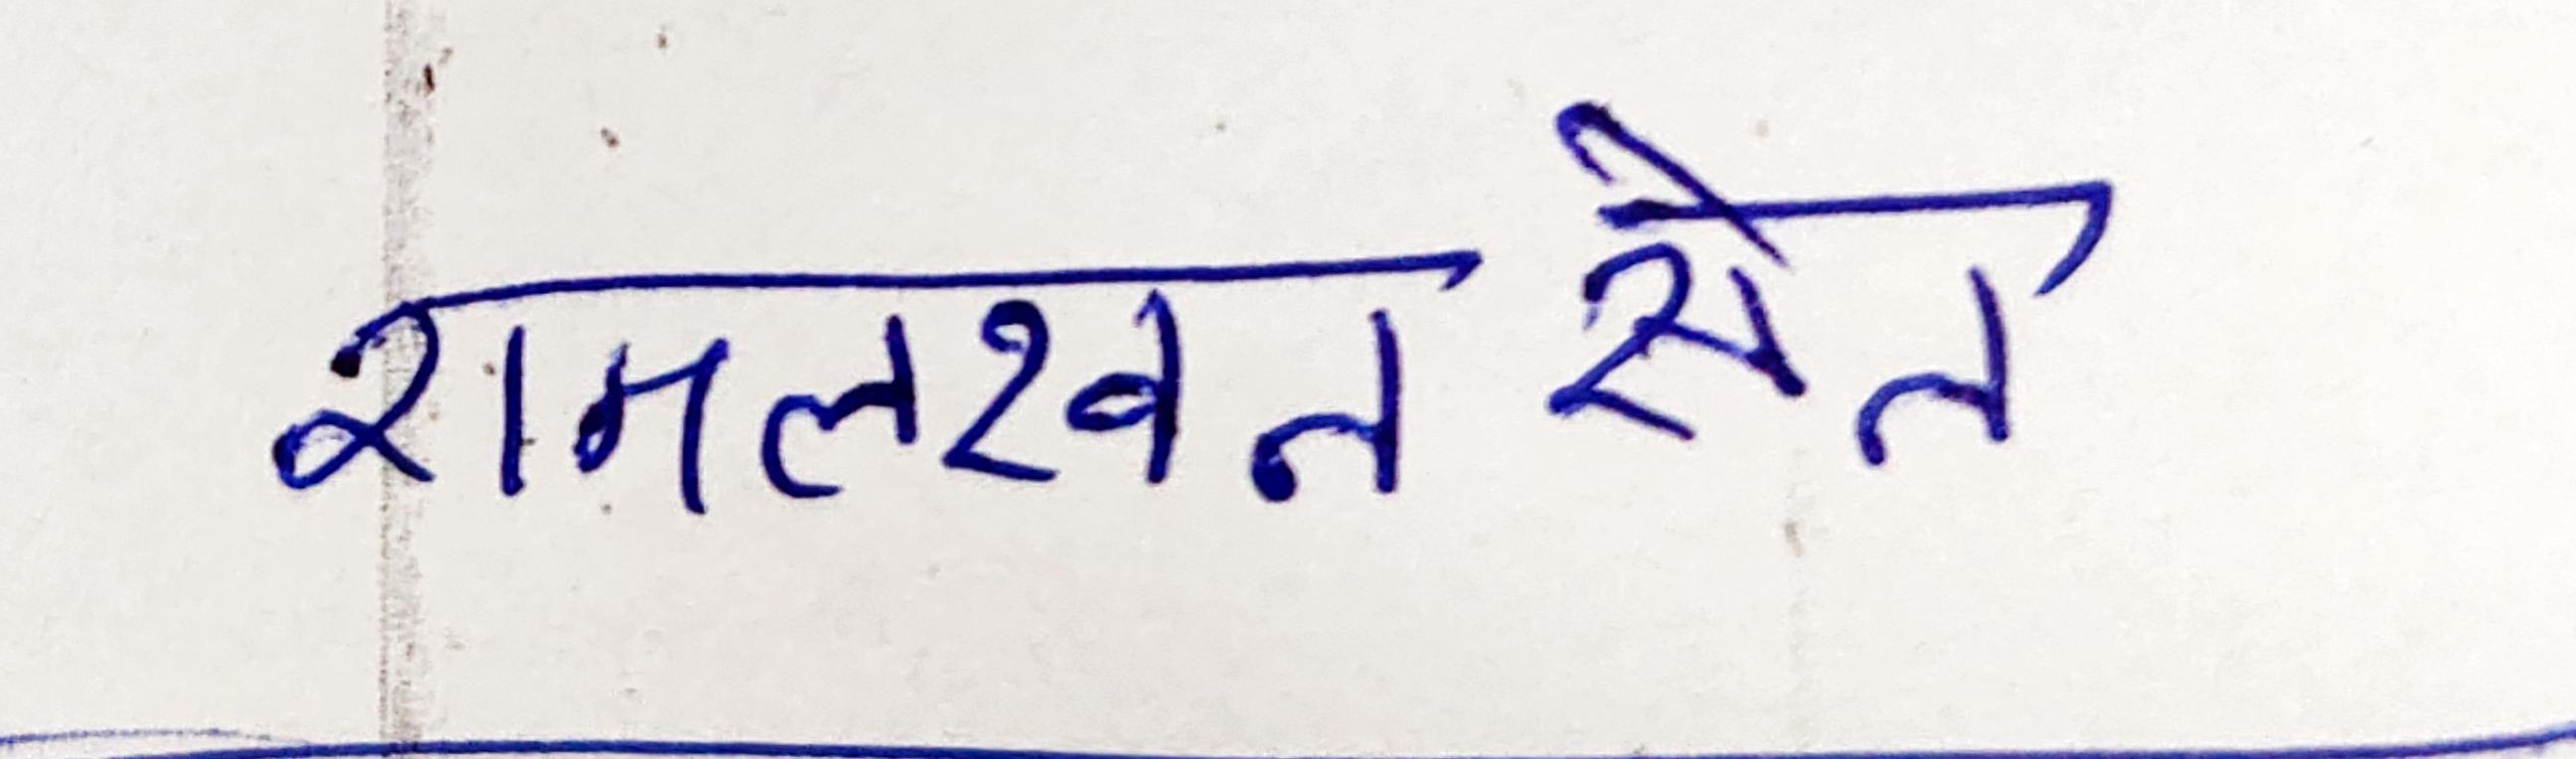 रामलखन सेन